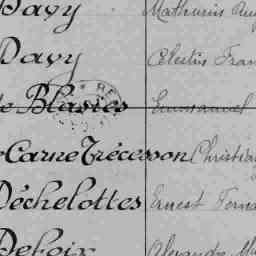 Davy Mathurin
Davy Célestin Fran
de Blasies Emmanuel
Carné Trécesson Christian
Déchelottes Ernest Ferna
Alexandre